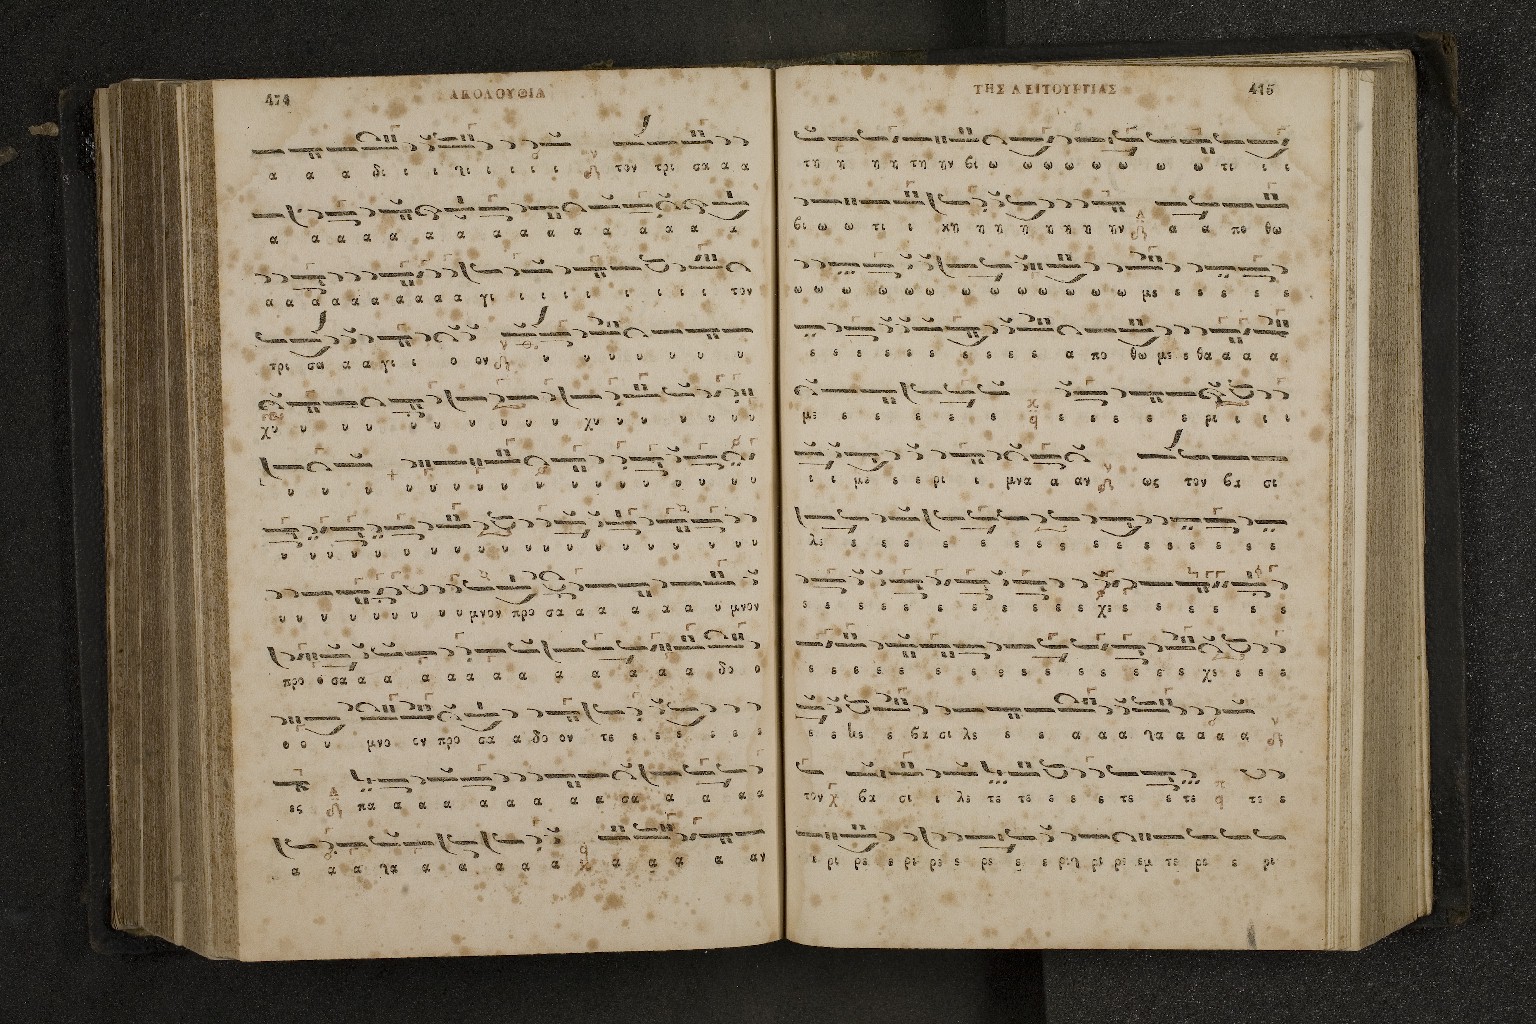 474
ΑΚΟΛΟΥΘΙΑ
α α α δι ι ι γι ι ι ι ι τον τρι σα α α
α α α α α α α α α α α α α α α
α α α α α α α α α α γι ι ι ι ι ι ι ι ι τον
τρι σα α α γι ι ο ον υ υ υ υ υ υ υ υ
χυ υ υ υ υ υ υ υ υ υ χυ υ υ υ υ υ υ
υ υ υ υ υ υ υ υ υ υ υ υ υ υ υ υ υ
υ υ υ υ υ υ υ υ υ υ υ υ υ υ υ υ υ υ
υ υ υ υ υ υ υ υ υ μνον προ σα α α α α α υ μνον
προ ο σα α α α α α α α α α α α α δο ο
ο ο υ μνο ον προ σα α δο ον τε ε ε ε ε ε ε
ες πα α α α α α α α α σα α α α α
α α α λα α α α α α α α α α αν
ΤΗΣ ΛΕΙΤΟΥΡΓΙΑΣ
415
τη η η η τη ην βι ω ω ω ω ω ω ω ω τι ι ι
βι ω ω τι ι κη η η η η κη η ην α α πο θω
ω ω ω ω ω ω ω ω ω ω ω ω ω ω με ε ε ε ε ε
ε ε ε ε ε ε ε ε ε ε α πο θω με ε θα α α α
με ε ε ε ε ε ε ε ε ε ε ε ε ρι ι ι ι
ι ι με ε ε ρι ι μνα α αν ως τον βα σι
λε ε ε ε ε ε ε ε ε ε ε ε ε ε ε ε ε ε
ε ε ε ε ε ε ε ε ε ε ε ε χε ε ε ε ε ε ε
ε ε ε ε ε ε ε ε ε ε ε ε ε ε ε χε ε ε ε
ε ε με ε βα σι λε ε ε α α α λα α α α α
τον βα σι ι λε τε τε ε ε ε ε τε ε τε τε ε
ι ρι ρε ε ρι ρε ε ρε ε ε ρι ρι ρε εμ τε ρε ε ρι